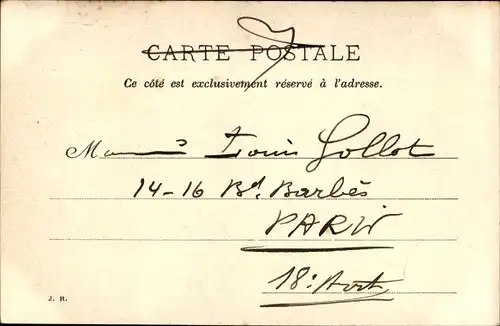 CARTE POSTALE
Ce côté est exclusivement réservé à l'adresse.
Monsieur Louis Gollot
14-16 Bd. Barbès
PARIS
18e Arrt
J. R.